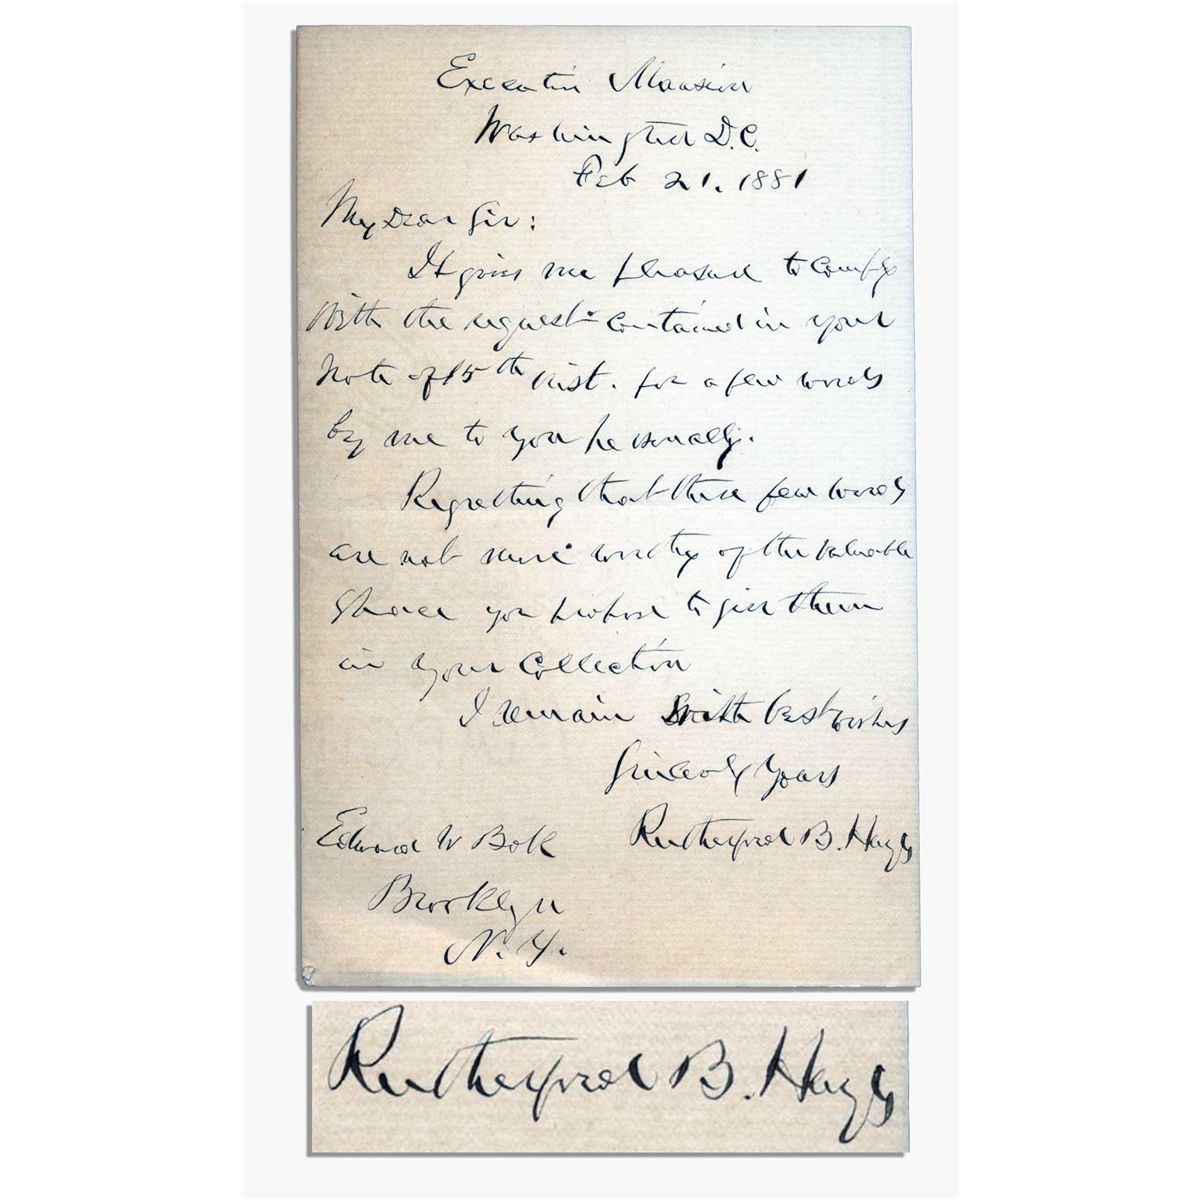 Executive Mansion
Washington D.C.
Feb 21. 1881
My Dear Sir:
It gives me pleasure to comply
with the request contained in your
note of 15th inst. for a few words
by me to you personally.
Regretting that these few words
are not more worthy of the valuable
space you propose to give them
in your Collection
I remain with best wishes
Sincerely Yours
Rutherford B. Hayes
Edward W Bok
Brooklyn
N.Y.
Rutherford B. Hayes